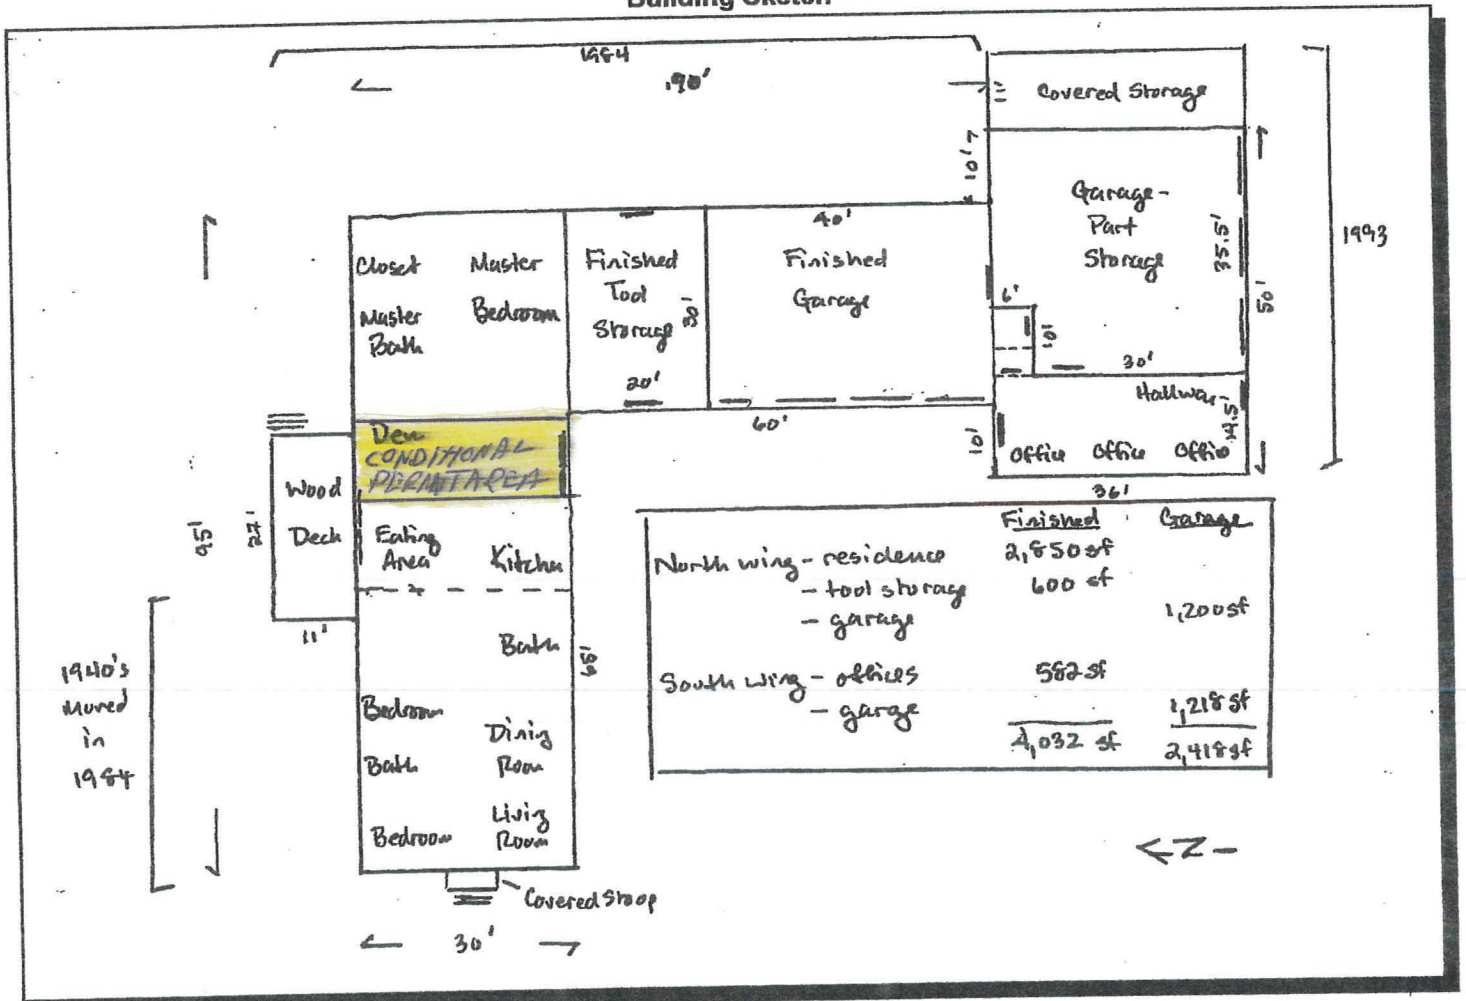 Building Sketch
1984
90'
Covered Storage
10'
Garage-
Part
Storage
35.5'
50'
1993
40'
Closet
Master
Bedroom
Master
Bath
Finished
Tool
Storage
30'
20'
Finished
Garage
6'
10'
30'
Hallway
14.5'
60'
10'
Office Office Office
36'
Den
CONDITIONAL
PERMIT AREA
Wood
Deck
27'
95'
11'
Eating
Area
Kitchen
Bath
65'
1940's
Moved
in
1984
Bedroom
Dining
Room
Bath
Living
Room
Bedroom
Covered Stoop
30'
Finished Garage
North wing - residence 2,850 sf
- tool storage 600 sf
- garage 1,200 sf
South wing - offices 582 sf
- garge 1,218 sf
4,032 sf 2,418 sf
N